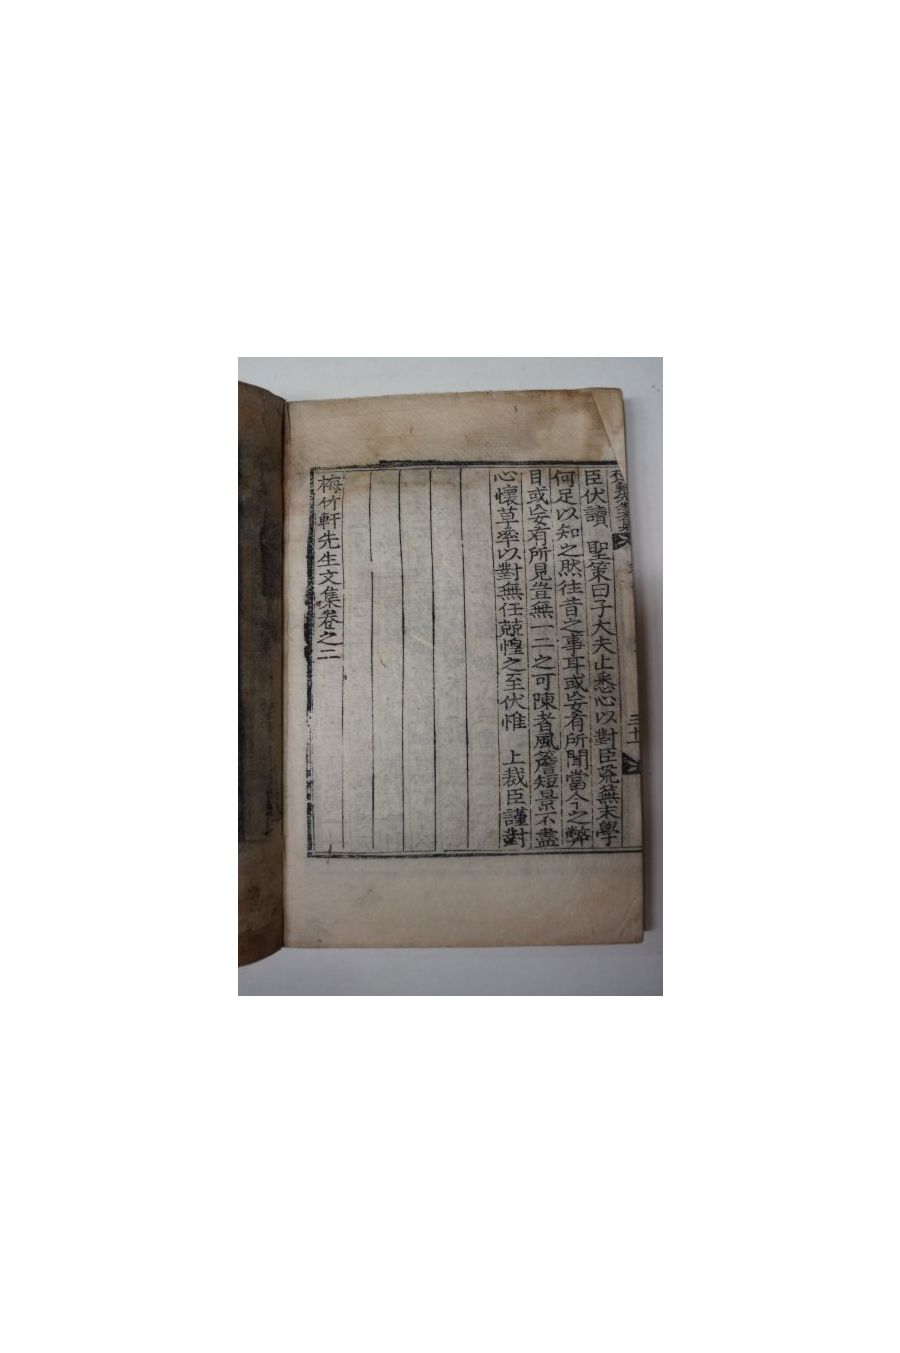 臣伏讀 聖策曰子大夫止悉心以對臣荒蕪末學
何足以知之然往昔之事耳或妄有所聞當今之弊
目或妄有所見豈無一二之可陳者風簷短景不盡
心懷草率以對無任兢惶之至伏惟 上裁臣謹對
梅竹軒先生文集卷之二